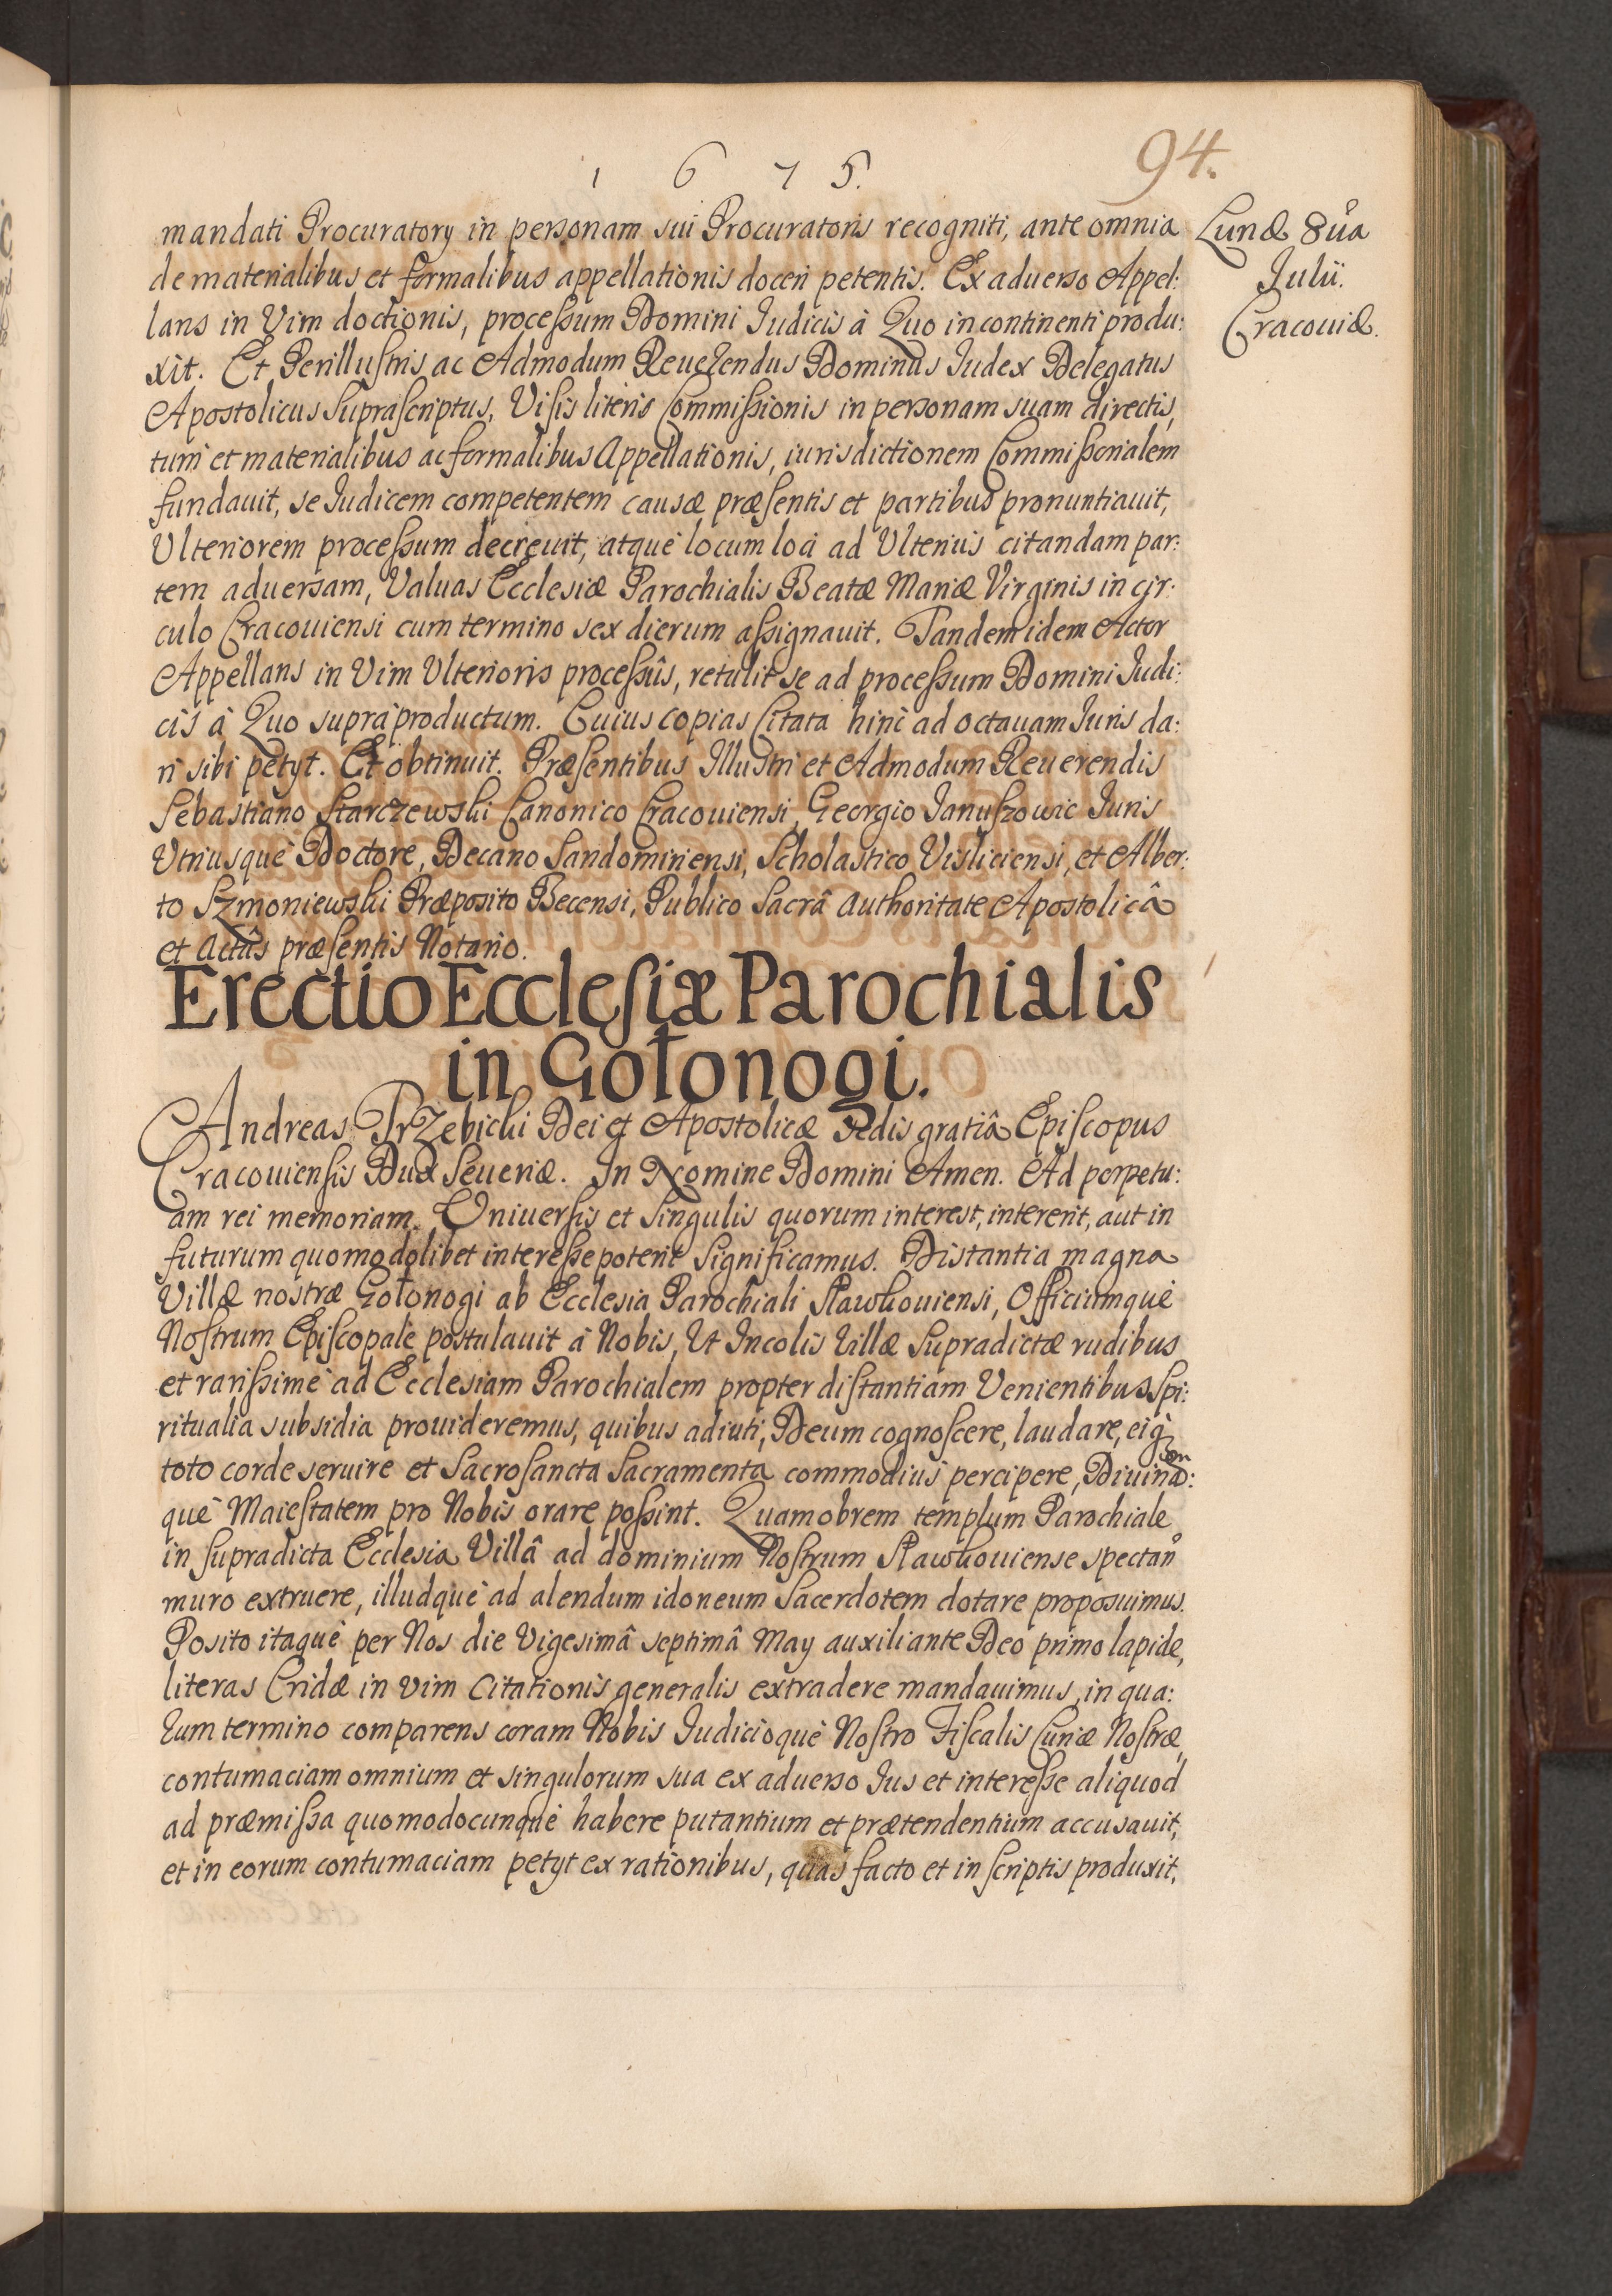 1 6 7 5.
94.
mandati Procuratory in personam sui Procuratoris recogniti, ante omnia
de materialibus et formalibus appellationis doceri petentis. Ex aduerso Appel:
lans in Vim doctionis, processum Domini Iudicis à Quo in continenti produ:
xit. Et Perillustris ac Admodum Reuerendus Dominus Iudex Delegatus
Apostolicus Suprascriptus, Visis literis Commissionis in personam suam directis,
tum et materialibus ac formalibus Appellationis, iurisdictionem Commissorialem
fundauit, se Iudicem competentem causæ præsentis et partibus pronuntiauit,
Ulteriorem processum decreuit, atque locum loci ad Ulterius citandam par:
tem aduersam, Valuas Ecclesiæ Parochialis Beatæ Mariæ Virginis in cir:
culo Cracouiensi cum termino sex dierum assignauit. Tandem idem Actor
Appellans in Vim Ulterioris processûs, retulit se ad processum Domini Iudi:
cis à Quo supra productum. Cuius copias Citata hinc ad octauam Iuris da:
ri sibi petyt. Et obtinuit. Præsentibus Illustri et Admodum Reuerendis
Sebastiano Starczewski Canonico Cracouiensi, Georgio Januszowic Iuris
Utriusque Doctore, Decano Sandomiriensi, Scholastico Visliciensi, et Alber:
to Szmoniewski Præposito Becensi, Publico Sacrâ Authoritate Apostolicâ
et Actûs præsentis Notario.
Lunæ 8ua
Iulii.
Cracouiæ.
Erectio Ecclesiæ Parochialis
in Gołonogi.
Andreas Trzebicki Dei et Apostolicæ Sedis gratiâ Episcopus
Cracouiensis Dux Seueriæ. In Nomine Domini Amen. Ad perpetu:
am rei memoriam. Uniuersis et Singulis quorum interest, intererit, aut in
futurum quomodolibet interesse poterit Significamus. Distantia magna
Villæ nostræ Gołonogi ab Ecclesia Parochiali Sławkouiensi, Officiumque
Nostrum Episcopale postulauit à Nobis, Ut Incolis Villæ Supradictæ rudibus
et rarissime ad Ecclesiam Parochialem propter distantiam Venientibus Spi:
ritualia subsidia prouideremus, quibus adiuti, Deum cognoscere, laudare, eiq
toto corde seruire et Sacrosancta Sacramenta commodius percipere, Diuinam:
que Maiestatem pro Nobis orare possint. Quamobrem templum Parochiale
in supradicta Ecclesia Villâ ad dominium Nostrum Sławkouiense spectan
muro extruere, illudque ad alendum idoneum Sacerdotem dotare proposuimus.
Posito itaque per Nos die Vigesimâ septimâ May auxiliante Deo primo lapide,
literas Cridæ in vim Citationis generalis extradere mandauimus, in qua:
rum termino comparens coram Nobis Iudicioque Nostro Fiscalis Curiæ Nostræ,
contumaciam omnium et singulorum sua ex aduerso Ius et interesse aliquod
ad præmissa quomodocunque habere putantium et prætendentium accusauit,
et in eorum contumaciam petyt ex rationibus, quas facto et in scriptis produxit,